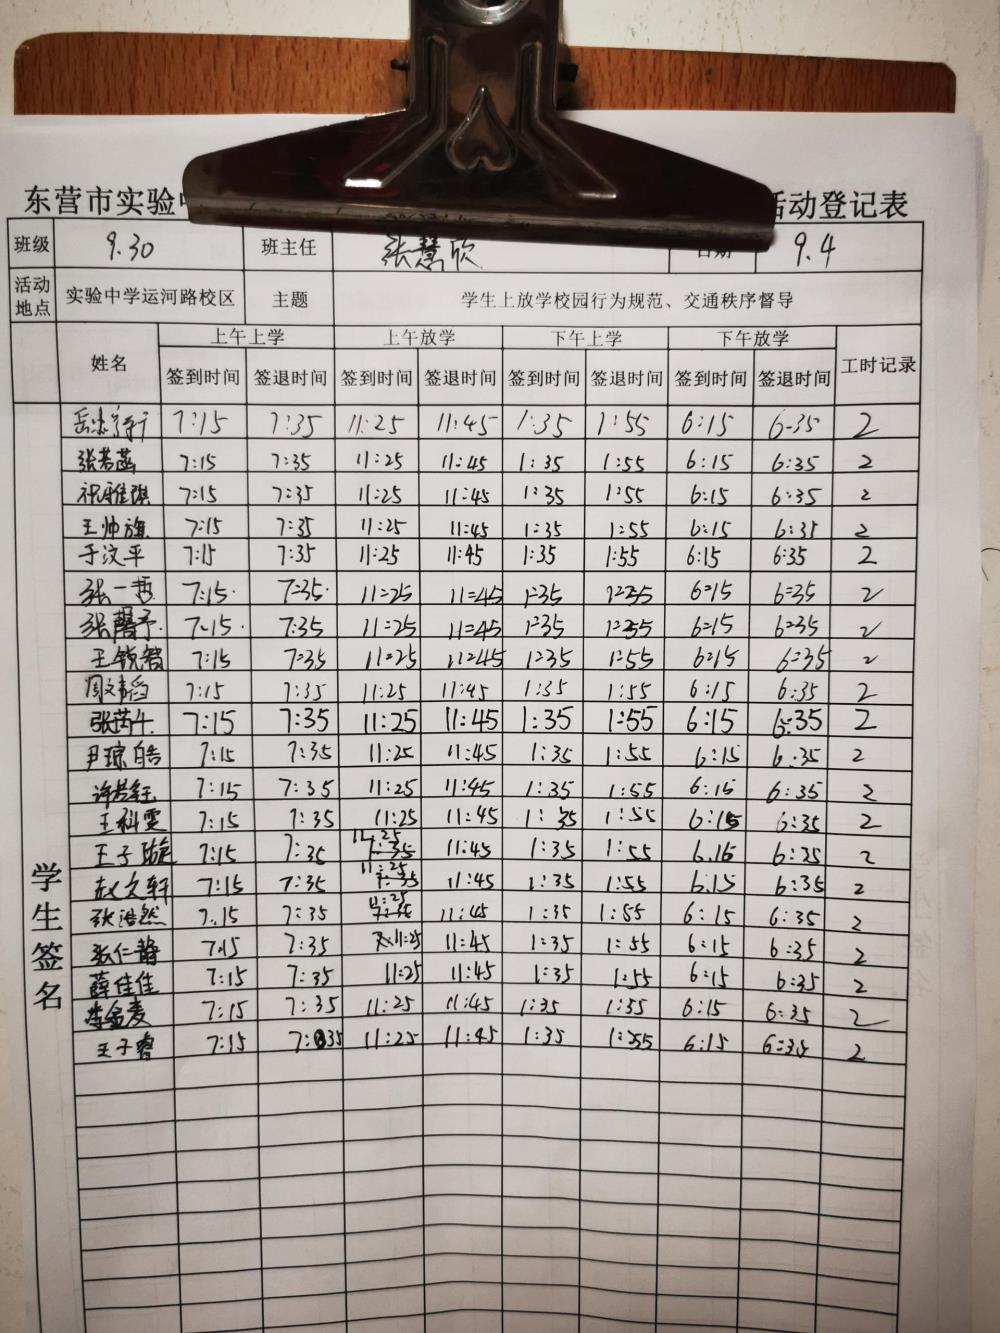 东营市实验 活动登记表
班级 9.30 班主任 张慧欣 日期 9.4
活动地点 实验中学运河路校区 主题 学生上放学校园行为规范、交通秩序督导
姓名 上午上学 上午放学 下午上学 下午放学 工时记录
签到时间 签退时间 签到时间 签退时间 签到时间 签退时间 签到时间 签退时间
学生签名
7:15 7:35 11:25 11:45 1:35 1:55 6:15 6:35 2
张若菡 7:15 7:35 11:25 11:45 1:35 1:55 6:15 6:35 2
祝雅琪 7:15 7:35 11:25 11:45 1:35 1:55 6:15 6:35 2
王帅旗 7:15 7:35 11:25 11:45 1:35 1:55 6:15 6:35 2
于汶平 7:15 7:35 11:25 11:45 1:35 1:55 6:15 6:35 2
张一哲 7:15 7:35 11:25 11:45 1:35 1:55 6:15 6:35 2
张馨予 7:15 7:35 11:25 11:45 1:35 1:55 6:15 6:35 2
王锐智 7:15 7:35 11:25 11:45 1:35 1:55 6:15 6:35 2
周文韬 7:15 7:35 11:25 11:45 1:35 1:55 6:15 6:35 2
张芮午 7:15 7:35 11:25 11:45 1:35 1:55 6:15 6:35 2
尹琮皓 7:15 7:35 11:25 11:45 1:35 1:55 6:15 6:35 2
许若钰 7:15 7:35 11:25 11:45 1:35 1:55 6:15 6:35 2
王科雯 7:15 7:35 11:25 11:45 1:35 1:55 6:15 6:35 2
王子璇 7:15 7:35 11:25 11:45 1:35 1:55 6.15 6:35 2
赵文轩 7:15 7:35 11:25 11:45 1:35 1:55 6.15 6:35 2
张浩然 7:15 7:35 11:25 11:45 1:35 1:55 6:15 6:35 2
张仁静 7:15 7:35 11:25 11:45 1:35 1:55 6:15 6:35 2
薛佳佳 7:15 7:35 11:25 11:45 1:35 1:55 6:15 6:35 2
李金麦 7:15 7:35 11:25 11:45 1:35 1:55 6:15 6:35 2
王子睿 7:15 7:35 11:25 11:45 1:35 1:55 6:15 6:35 2